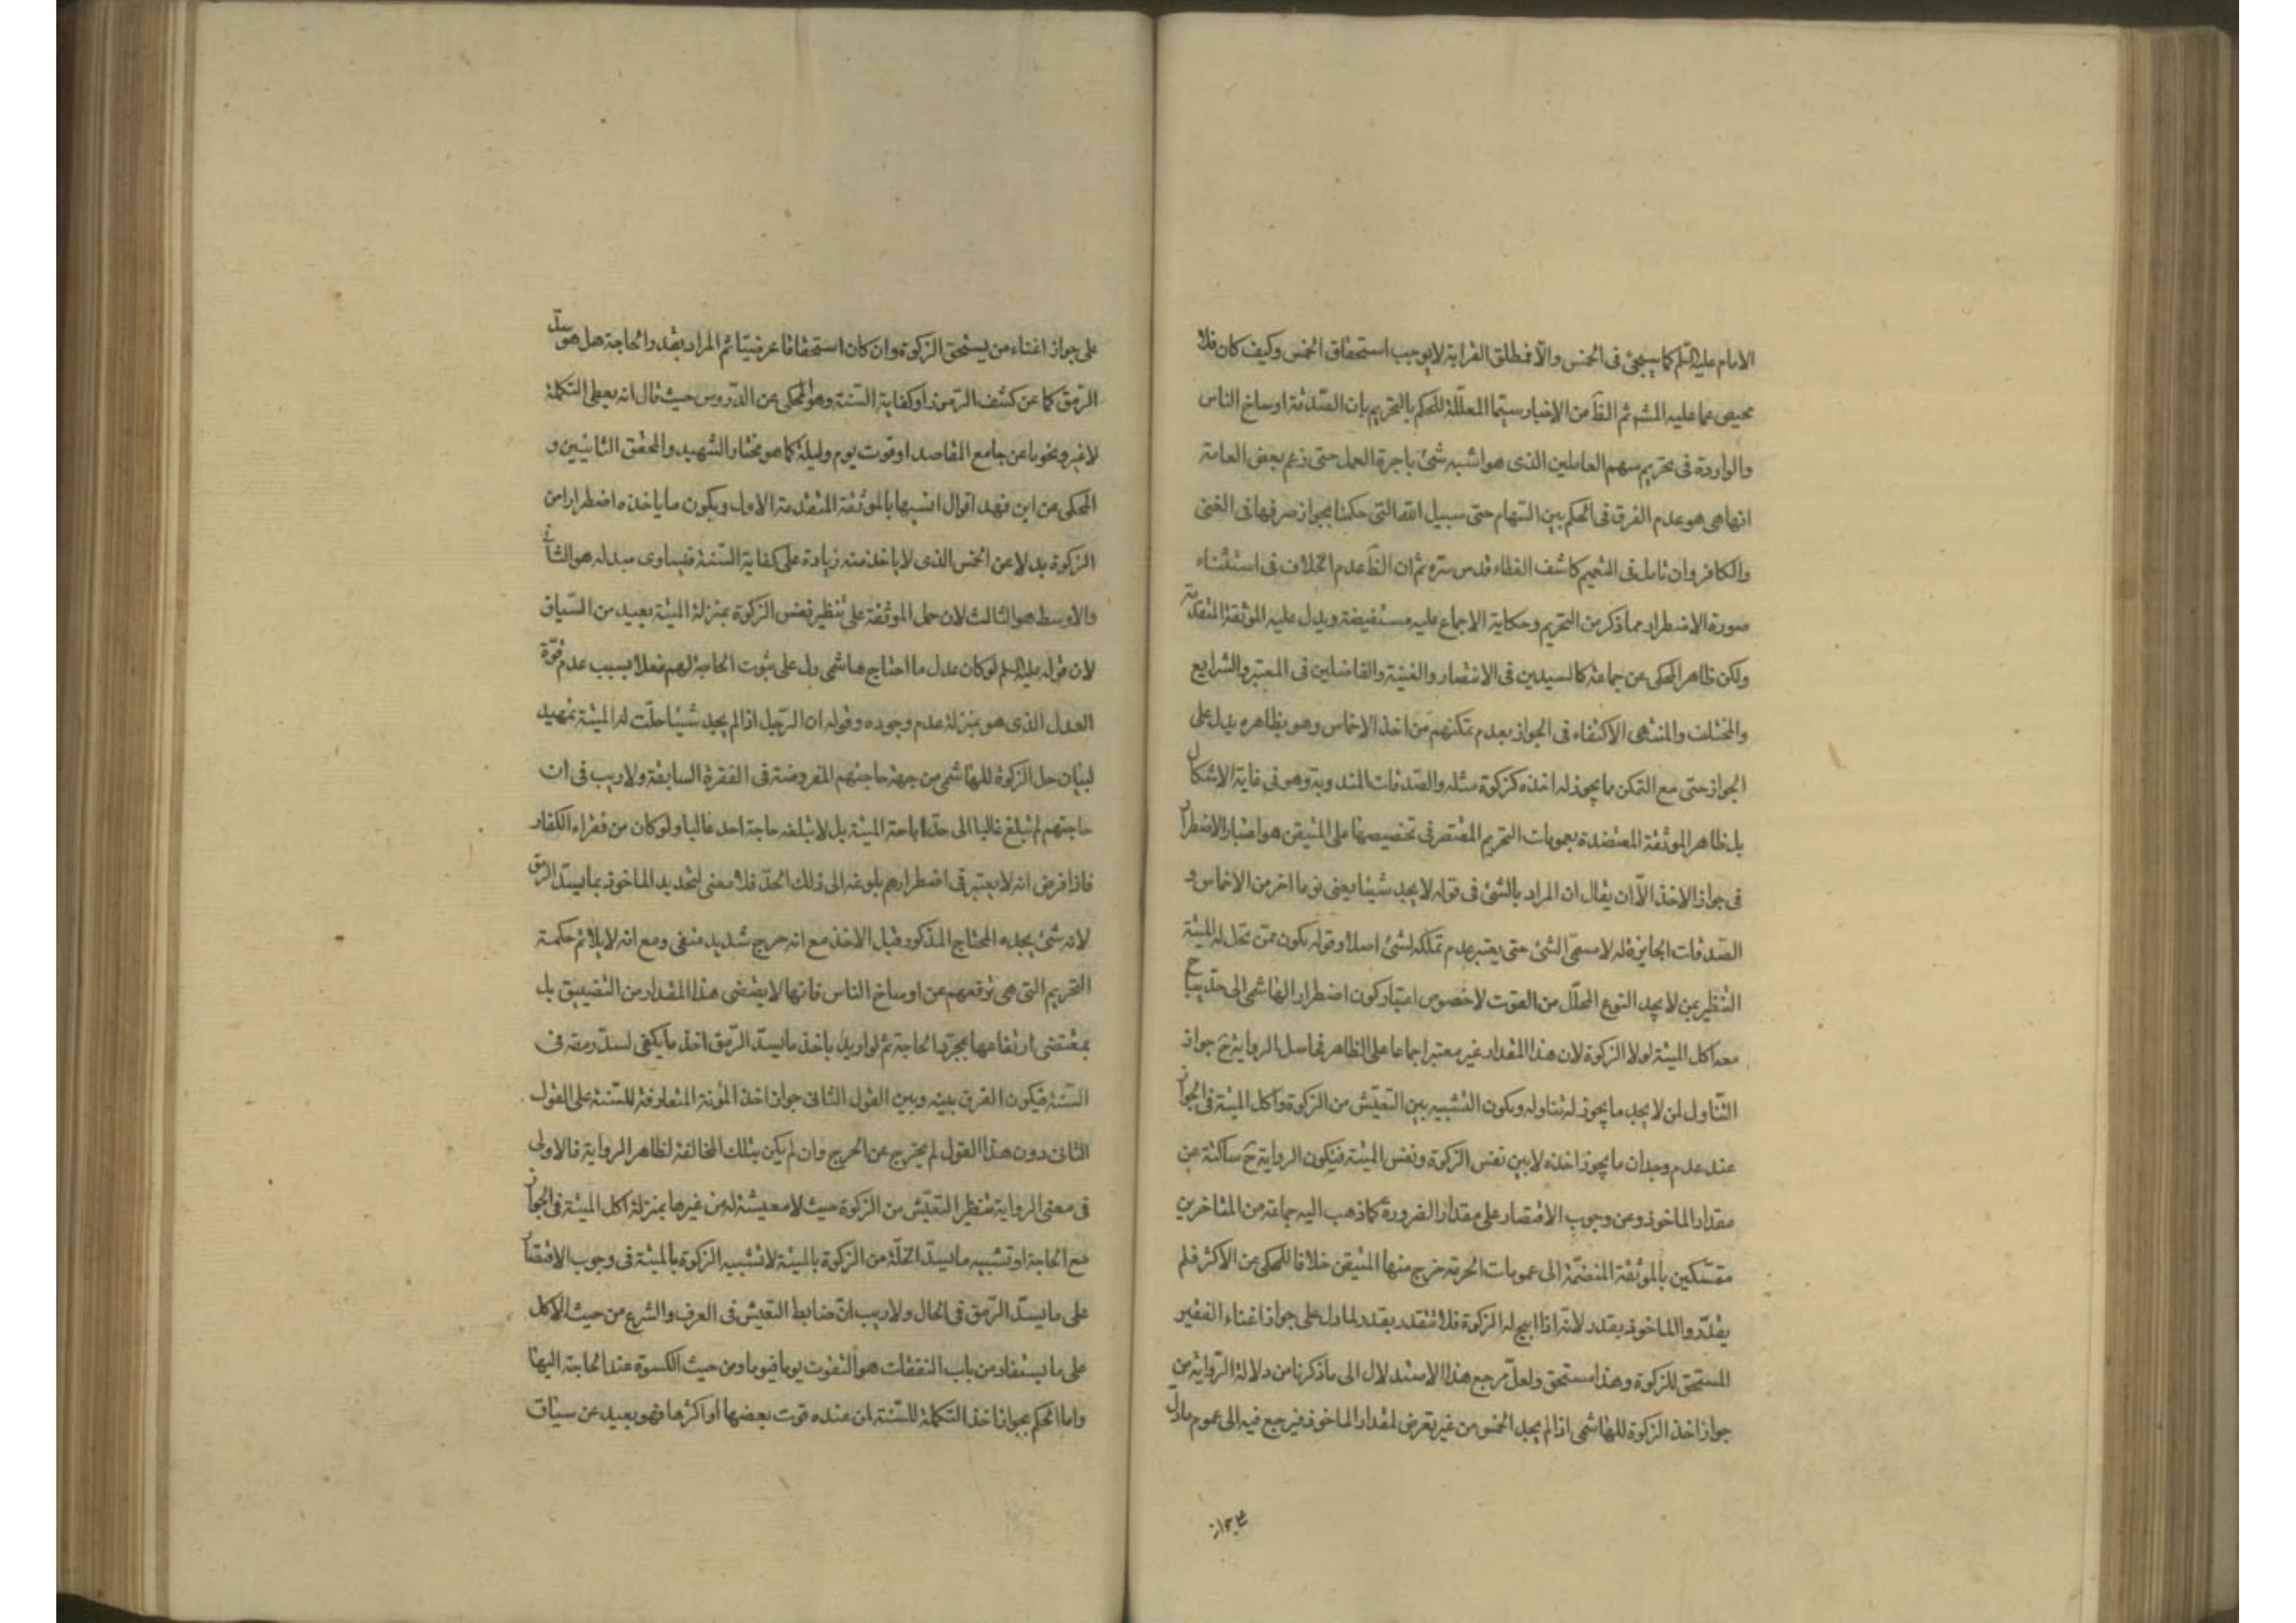 الامام عليه السلم كما سيجئ فى الخمس والّا فمطلق القرابة لا يوجب استحقاق الخمس وكيف كان فلا
محيص عما عليه المشه ثم الظَ من الاخبار سيّما المعلّلة للحكم بالتحريم بان الصّدقة اوساخ الناس
والواردة فى تحريم سهم العاملين الذى هو اشبه شئ باجرة العمل حتى زعم بعض العامة
انها هى هو عدم الفرق فى الحكم بين السّهام حتى سبيل الله التى حكمنا بجواز صرفها فى الغنى
والكافر وان تامل فى التعميم كاشف الغطاء قدس سّره ثم ان الظَ عدم الخلاف فى استثناء
صورة الاضطرار مما ذكر من التحريم وحكاية الاجماع عليه مستفيضة ويدل عليه الموثقة المتقدمة
ولكن ظاهر المحكى عن جماعة كالسيدين فى الانتصار والغنية والفاضلين فى المعتبر والشرايع
والمختلف والمنتهى الاكتفاء فى الجواز بعدم تمكنهم من اخذ الاخماس وهو بظاهره يدل على
الجواز حتى مع التمكن ما يجوز له اخذه كزكوة مثله والصّدقات المندوبة وهو فى غاية الاشكال
بل ظاهر الموثقة المعتضدة بعمومات التحريم المقتصر فى تخصيصها على المتيقن هو اعتبار الاضطرار
فى جواز الاخذ الّا ان يقال ان المراد بالشئ فى قوله لا يجد شيئا يعنى نوعا اخر من الاخماس و
الصّدقات الجايزة له لا مسمّى الشئ حتى يعتبر عدم تملكه لشئ اصلا وقوله يكون ممّن تحل له الميتة
التنظير بمن لا يجد النوع المحلّل من القوت لا خصوص اعتبار كون اضطرار الهاشمى الى حدّ يباح
معه اكل الميتة لولا الزكوة لان هذا المقدار غير معتبر اجماعا على الظاهر فحاصل الرواية حَ جواز
التّناول لمن لا يجد ما يجوز له تناوله ويكون التشبيه بين التعيّش من الزكوة واكل الميتة فى الجواز
عند عدم وجدان ما يجوز اخذه لا بين نفس الزكوة ونفس الميتة فيكون الرواية حَ ساكتة عن
مقدار الماخوذ وعن وجوب الاقتصار على مقدار الضرورة كما ذهب اليه جماعة من المتاخرين
متمسّكين بالموثقة المنضمّة الى عمومات الحرمة خرج منها المتيقن خلافا للمحكى عن الاكثر فلم
يقدّروا الماخوذ بقدر لانّه اذا ابيح له الزكوة فلا تتقدر بقدر لما دل على جواز اغناء الفقير
المستحق للزكوة وهذا مستحق ولعلّ مرجع هذا الاستدلال الى ما ذكرنا من دلالة الرّواية من
جواز اخذ الزكوة للهاشمى اذا لم يجد الخمس من غير تعرض لمقدار الماخوذ فيرجع فيه الى عموم ما دلّ
على جواز اغناء من يستحق الزكوة وان كان استحقاقا عرضيّا ثم المراد بقدر الحاجة هل هو سدّ
الرّمق كما عن كشف الرّموز او كفاية السّنة وهو المحكى عن الدّروس حيث قال انه يعطى التكملة
لا غير ونحوها عن جامع المقاصد او قوت يوم وليلة كما هو مختار الشهيد والمحقق الثانيين و
المحكى عن ابن فهد اقوال انسبها بالموثقة المتقدمة الاول ويكون ما ياخذه اضطرارا من
الزكوة بدلا عن الخمس الذى لا ياخذ منه زيادة على كفاية السّنة فيساوى مبدله هو الثانى
والاوسط هو الثالث لان حمل الموثقة على تنظير نفس الزكوة بمنزلة الميتة بعيد من السّياق
لان قوله عليه السلم لو كان عدل ما احتاج هاشمى دل على ثبوت الحاجة لهم فعلا بسبب عدم قوّة
العدل الذى هو بمنزلة عدم وجوده وقوله ان الرّجل اذا لم يجد شيئا حلّت له الميتة تمهيد
لبيان حل الزكوة للهاشمى من جهة حاجتهم المفروضة فى الفقرة السابقة ولا ريب فى ان
حاجتهم لم تبلغ غالبا الى حدّ اباحة الميتة بل لا تبلغه حاجة احد غالبا ولو كان من فقراء الكفار
فاذا فرض انه لا يعتبر فى اضطرارهم بلوغه الى ذلك الحدّ فلا معنى لتحديد الماخوذ بما يسدّ الرمق
لانه شئ يجده المحتاج المذكور قبل الاخذ مع انه حرج شديد منفى ومع انه لا يلائم حكمة
التحريم التى هى ترفعهم عن اوساخ الناس فانها لا يقتضى هذا المقدار من التضييق بل
بمقتضى ارتفاعها بمجرّد الحاجة ثم لو اريد باخذ ما يسدّ الرّمق اخذ ما يكفى لسدّ رمقه فى
السّنة فيكون الفرق بينه وبين القول الثانى جواز اخذ المؤنة المتعارفة للسّنة على القول
الثانى دون هذا القول لم يخرج عن الحرج وان لم يكن بتلك المخالفة لظاهر الرواية فالاولى
فى معنى الرواية تنظير التعيّش من الزكوة حيث لا معيشة له من غيرها بمنزلة اكل الميتة فى الجواز
مع الحاجة او تشبيه ما يسدّ الخلّة من الزكوة بالميتة لا تشبيه الزكوة بالميتة فى وجوب الاقتصار
على ما يسدّ الرّمق فى الحال ولا ريب انّ ضابط التعيش فى العرف والشرع من حيث الاكل
على ما يستفاد من باب النفقات هو التقوت يوما فيوما ومن حيث الكسوة عند الحاجة اليها
واما الحكم بجواز اخذ التكملة للسّنة ان عنده قوت بعضها او اكثرها فهو بعيد عن سياق